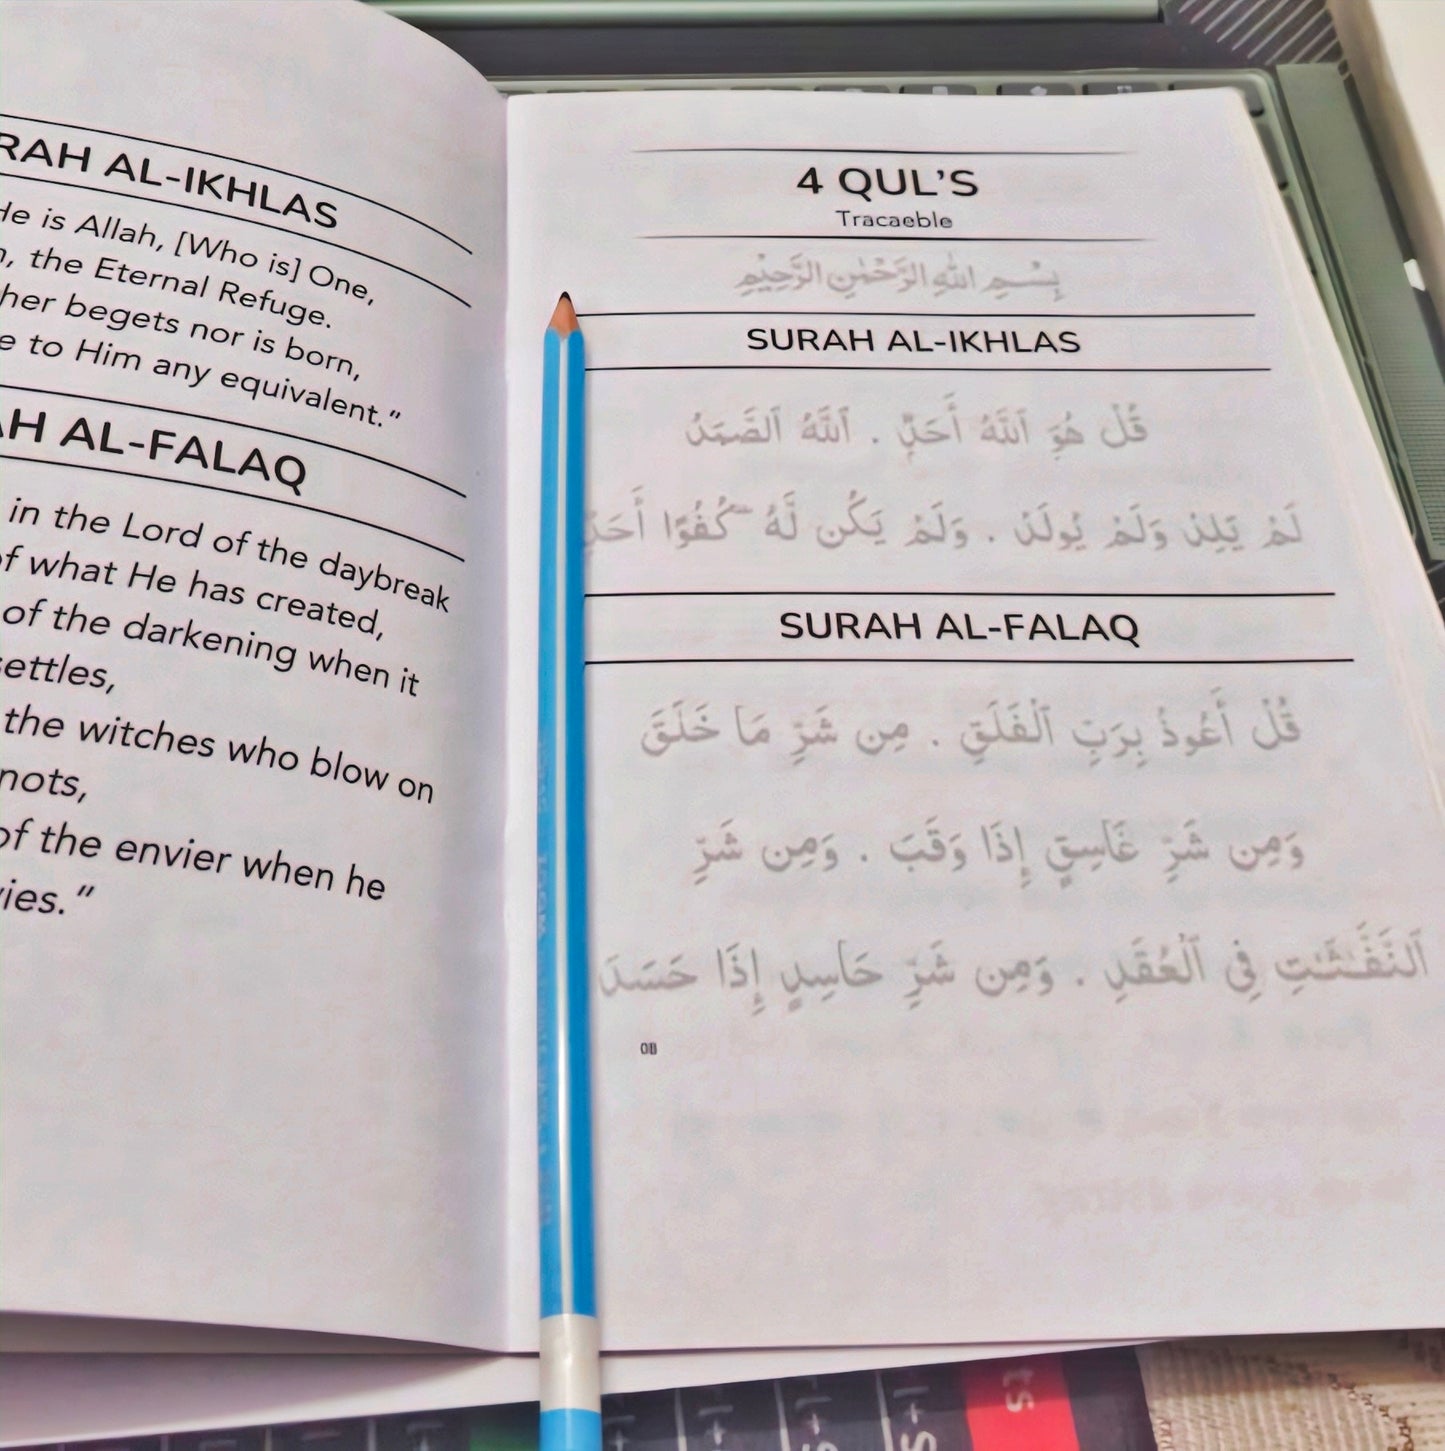 RAH AL-IKHLAS
He is Allah, [Who is] One,
the Eternal Refuge.
her begets nor is born,
e to Him any equivalent.”
AH AL-FALAQ
in the Lord of the daybreak
of what He has created,
of the darkening when it
settles,
the witches who blow on
nots,
of the envier when he
vies.”
4 QUL’S
Tracaeble
بِسْمِ اللهِ الرَّحْمٰنِ الرَّحِيْمِ
SURAH AL-IKHLAS
قُلْ هُوَ ٱللَّهُ أَحَدٌ . ٱللَّهُ ٱلصَّمَدُ
لَمْ يَلِدْ وَلَمْ يُولَدْ . وَلَمْ يَكُن لَّهُ كُفُوًا أَحَدٌ
SURAH AL-FALAQ
قُلْ أَعُوذُ بِرَبِّ ٱلْفَلَقِ . مِن شَرِّ مَا خَلَقَ
وَمِن شَرِّ غَاسِقٍ إِذَا وَقَبَ . وَمِن شَرِّ
ٱلنَّفَّـٰثَـٰتِ فِى ٱلْعُقَدِ . وَمِن شَرِّ حَاسِدٍ إِذَا حَسَدَ
08
ts